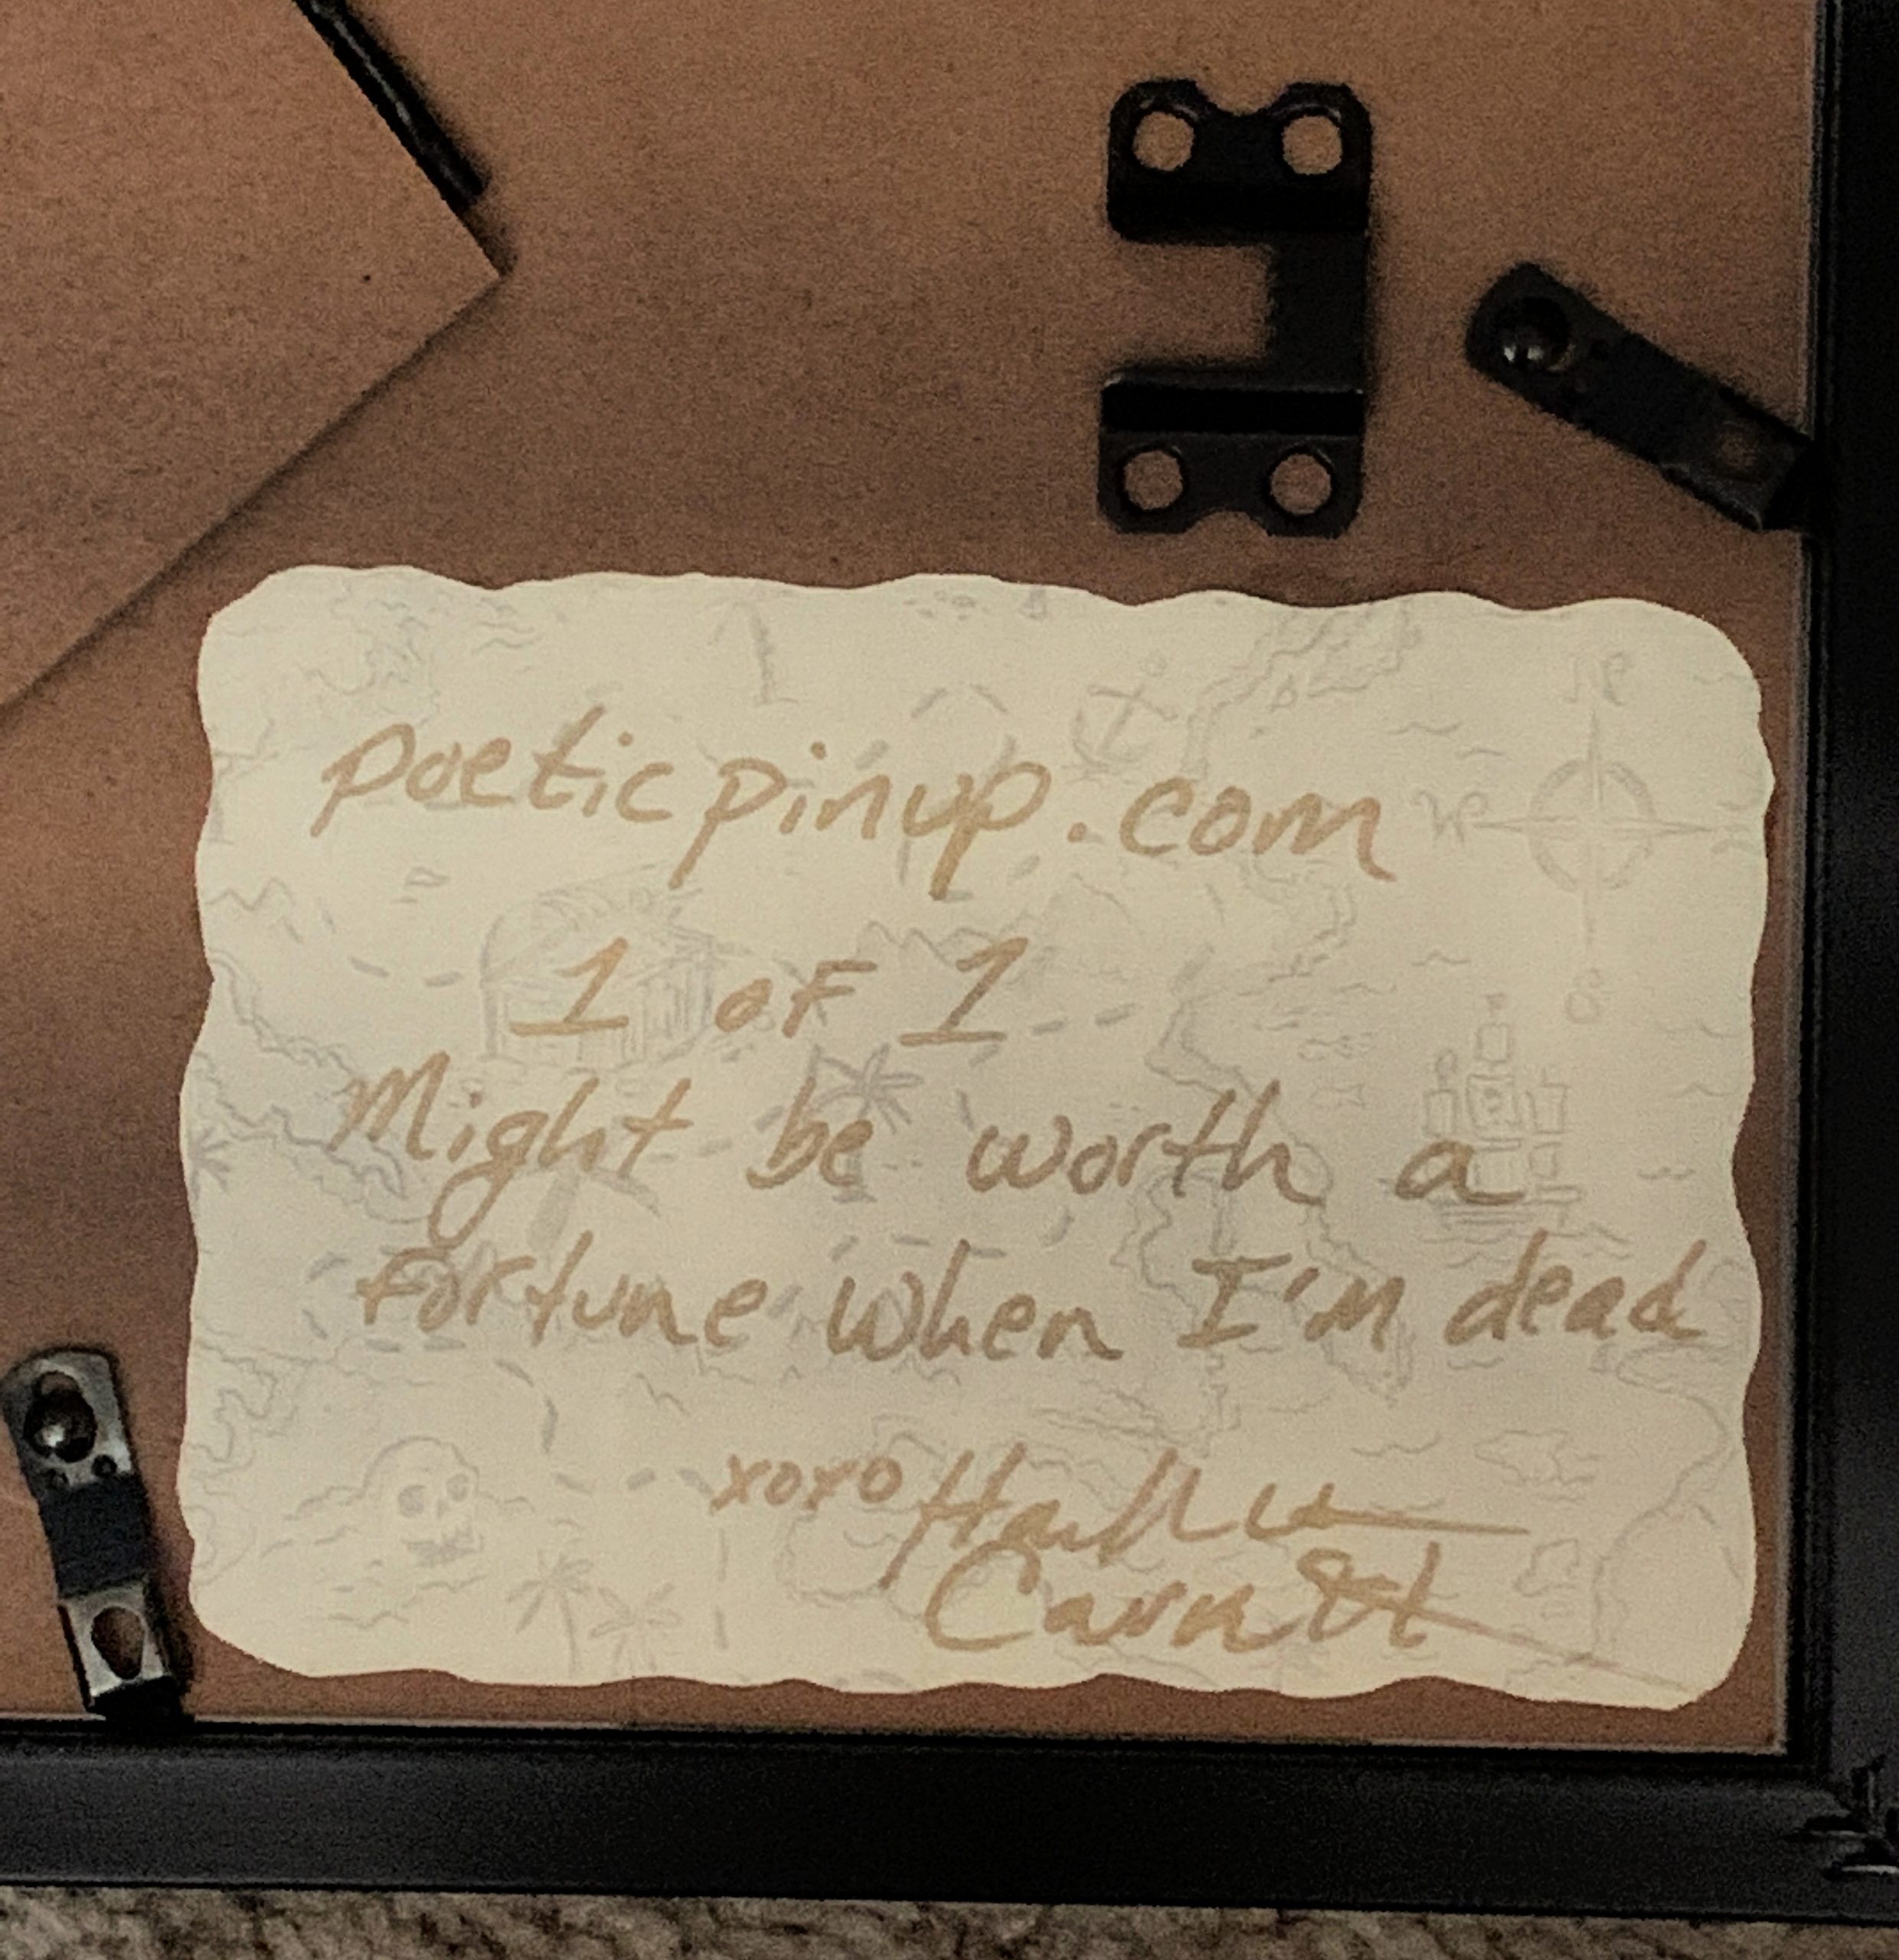 poeticpinup.com
1 of 1
Might be worth a
fortune when I'm dead
xoxo
W